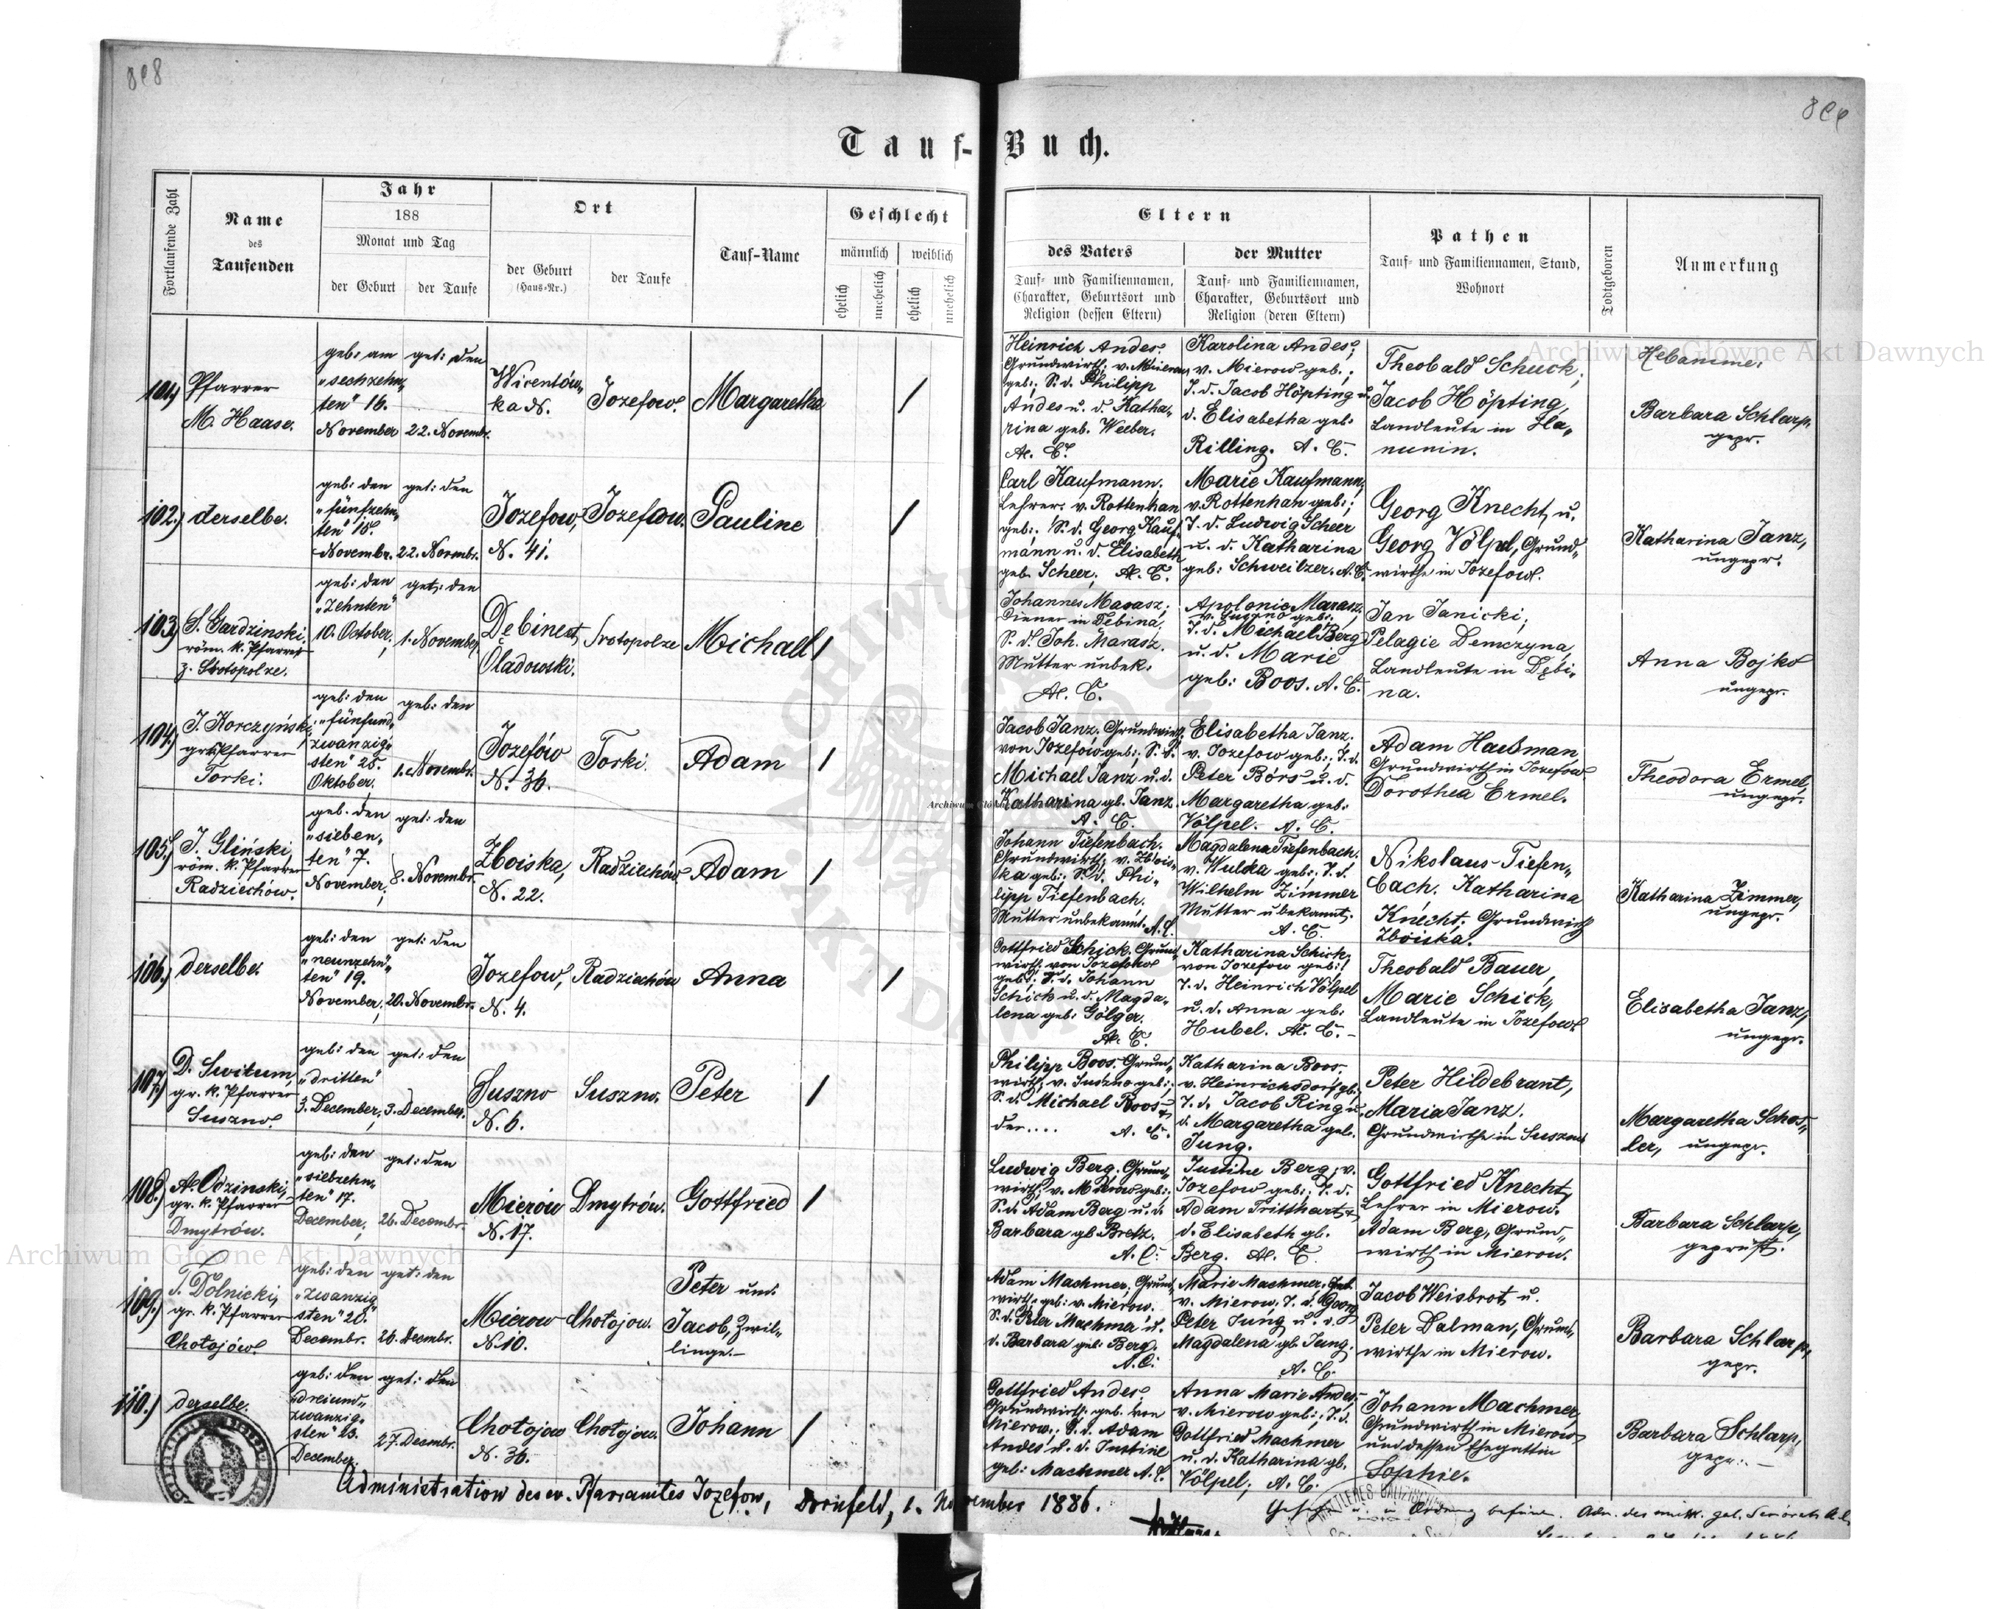 808
809
Tauf-Buch.
Fortlaufende Zahl
Name
des
Taufenden
Jahr
188
Monat und Tag
der Geburt
der Taufe
Ort
der Geburt
(Haus-Nr.)
der Taufe
Tauf-Name
Geschlecht
männlich
weiblich
ehelich
unehelich
ehelich
unehelich
Eltern
des Vaters
Tauf- und Familiennamen,
Charakter, Geburtsort und
Religion (dessen Eltern)
der Mutter
Tauf- und Familiennamen,
Charakter, Geburtsort und
Religion (deren Eltern)
Pathen
Tauf- und Familiennamen, Stand,
Wohnort
Todtgeboren
Anmerkung
101.)
Pfarrer
M. Haase.
geb: am
"sechzehn-
ten" 16.
November
get: den
22. Novembr.
Wirentów-
ka N.
Jozefow.
Margaretha
/
Heinrich Andes.
Grundwirth: v. Mierow
geb:, S. d. Philipp
Andes u. d. Katha-
rina geb. Weeber.
A. C.
Karolina Andes;
v. Mierow geb:,
T. d. Jacob Höpting u.
d. Elisabetha geb:
Rilling. A. C.
Theobald Schuck;
Jacob Höpting,
Landleute in Ha-
nunin.
Hebamme:
Barbara Schlarp,
gepr.
102.)
derselbe.
geb: den
"fünfzehn-
ten" 15.
Novembr.
get: den
22. Novembr.
Jozefow,
N. 41.
Jozefow.
Pauline
/
Carl Kaufmann.
Lehrer: v. Rottenhan
geb:, S. d. Georg Kauf-
mann u. d. Elisabeth
geb. Scheer. A. C.
Marie Kaufmann,
v. Rottenhan geb:;
T. d. Ludwig Scheer
u. d. Katharina
geb: Schweitzer. A. C.
Georg Knecht, u.
Georg Völpel, Grund-
wirthe in Jozefow.
Katharina Janz,
ungepr.
103.)
S. Gardzinski,
röm. k. Pfarrer
z. Stotopolze.
geb: den
"Zehnten"
10. October,
get: den
1. November,
Dębina,
Oladowski.
Srotopolze
Michael
/
Johannes Marasz;
Diener in Debina,
S. d. Joh. Marasz.
Mutter unbek:
A. C.
Apolonie Marasz.
v. Suszno geb:
T. d. Michael Berg
u. d. Marie
geb: Boos. A. C.
Jan Janicki;
Pelagie Demczyna,
Landleute in Dębi-
na.
Anna Bojko
ungepr.
104.)
J. Korczyński;
gr. k. Pfarrer
Torki.
geb: den
"fünfund-
zwanzig-
sten" 25.
Oktober,
geb: den
1. Novembr.
Jozefów
N. 36.
Torki.
Adam
/
Jacob Janz. Grundwirth,
von Jozefow geb:, S. d.
Michael Janz u. d.
Katharina gb. Janz.
A. C.
Elisabetha Janz.
v. Jozefow geb:, T. d.
Peter Börs u. d.
Margaretha geb:
Völpel. A. C.
Adam Hausman,
Grundwirth in Jozefow
Dorothea Ermel.
Theodora Ermel,
ungepr.
105.)
J. Gliński,
röm. k. Pfarrer
Radziechów.
geb. den
"sieben-
ten" 7.
November,
get: den
8. Novembr.
Zboiska,
N. 22.
Radziechów.
Adam
/
Johann Tiefenbach.
Grundwirth: v. Zbois-
ka geb:, S. d. Phi-
lipp Tiefenbach.
Mutter unbekannt. A. C.
Magdalena Tiefenbach.
v. Wulka geb:, T. d.
Wilhelm Zimmer
Mutter ubekannt.
A. C.
Nikolaus Tiefen-
bach, Katharina
Knecht, Grundwirth
Zboiska.
Katharina Zimmer,
ungepr.
106.)
derselbe.
geb: den
"neunzehn-
ten" 19.
November,
get: den
20. Novembr.
Jozefow,
N. 4.
Radziechów
Anna
/
Gottfried Schick, Grund-
wirth: von Jozefow
geb:, S. d. Johann
Schick u. d. Magda-
lena geb: Golger.
A. C.
Katharina Schick,
von Jozefow geb:,
T. d. Heinrich Völpel
u. d. Anna geb:
Hubel. A. C.
Theobald Bauer,
Marie Schick,
Landleute in Jozefow.
Elisabetha Janz,
ungepr.
107.)
D. Switum,
gr. k. Pfarrer
Suszno.
geb: den
"dritten"
3. December,
get: den
3. December.
Suszno
N. 6.
Suszno.
Peter
/
Philipp Boos. Grund-
wirth, v. Suszno geb:;
S. d. Michael Boos u.
der....
A. C.
Katharina Boos.
v. Heinrichsdorf gb,
T. d. Jacob Ring u.
d. Margaretha geb.
Jung.
Peter Hildebrant,
Maria Janz.
Grundwirthe in Suszno
Margaretha Schos-
ler, ungepr.
108.)
A. Odzinski,
gr. k. Pfarrer
Dmytrów.
geb: den
"siebzehn-
ten" 17.
December,
get: den
26. Decembr.
Mierów
N. 17.
Dmytrów.
Gottfried
/
Ludwig Berg. Grund-
wirth: v. Mierow geb:
S. d. Adam Berg u. d.
Barbara gb. Bretz.
A. C.
Justine Berg, v.
Jozefow geb:, T. d.
Adam Tritthart u.
d. Elisabeth gb.
Berg. A. C.
Gottfried Knecht,
Lehrer in Mierow.
Adam Berg, Grund-
wirth in Mierow.
Barbara Schlarp,
geprüft.
109.)
T. Dolnicki,
gr. k. Pfarrer
Chotojów.
geb: den
"zwanzig-
sten" 20.
Decembr.
get: den
26. Decembr.
Mierow
N. 10.
Chotojow.
Peter und
Jacob, Zwil-
linge.
Adam Machmer, Grund-
wirth: geb: v. Mierow.
S. d. Peter Machma u.
d. Barbara geb: Berg.
A. C.
Marie Machmer. geb.
v. Mierow, T. d. Georg
Peter Jung u. d.
Magdalena gb. Jung.
A. C.
Jacob Weisbrot u.
Peter Dalman, Grund-
wirthe in Mierow.
Barbara Schlarp,
gepr.
110.)
derselbe.
geb: den
"dreiund-
zwanzig-
sten" 23.
December.
get: den
27. Decembr.
Chotojow
N. 36.
Chotojow.
Johann
/
Gottfried Andes.
Grundwirth: geb. von
Mierow, S. d. Adam
Andes u. d. Justine
geb: Machmer A. C.
Anna Marie Andes,
v. Mierow geb:, T. d.
Gottfried Machmer
u. d. Katharina gb.
Völpel; A. C.
Johann Machmer,
Grundwirth in Mierow
und dessen Ehegattin
Sophie.
Barbara Schlarp,
gepr.
Administration des ev. Pfarramtes Jozefow, Dornfeld, 1. November 1886.
Archiwum Główne Akt Dawnych
Archiwum Główne Akt Dawnych